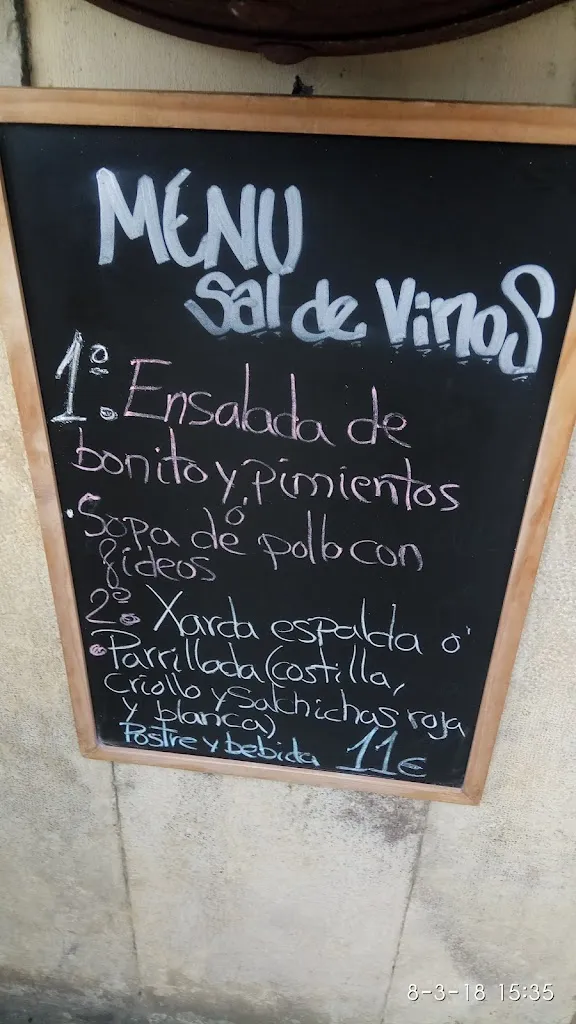 MENU
Sal de Vinos
1º. Ensalada de
bonito y pimientos
ó
• Sopa de pollo con
fideos
2º. Xarda espalda o'
• Parrillada (costilla,
criollo y Salchichas roja
y blanca)
Postre y bebida 11€
8-3-18 15:35